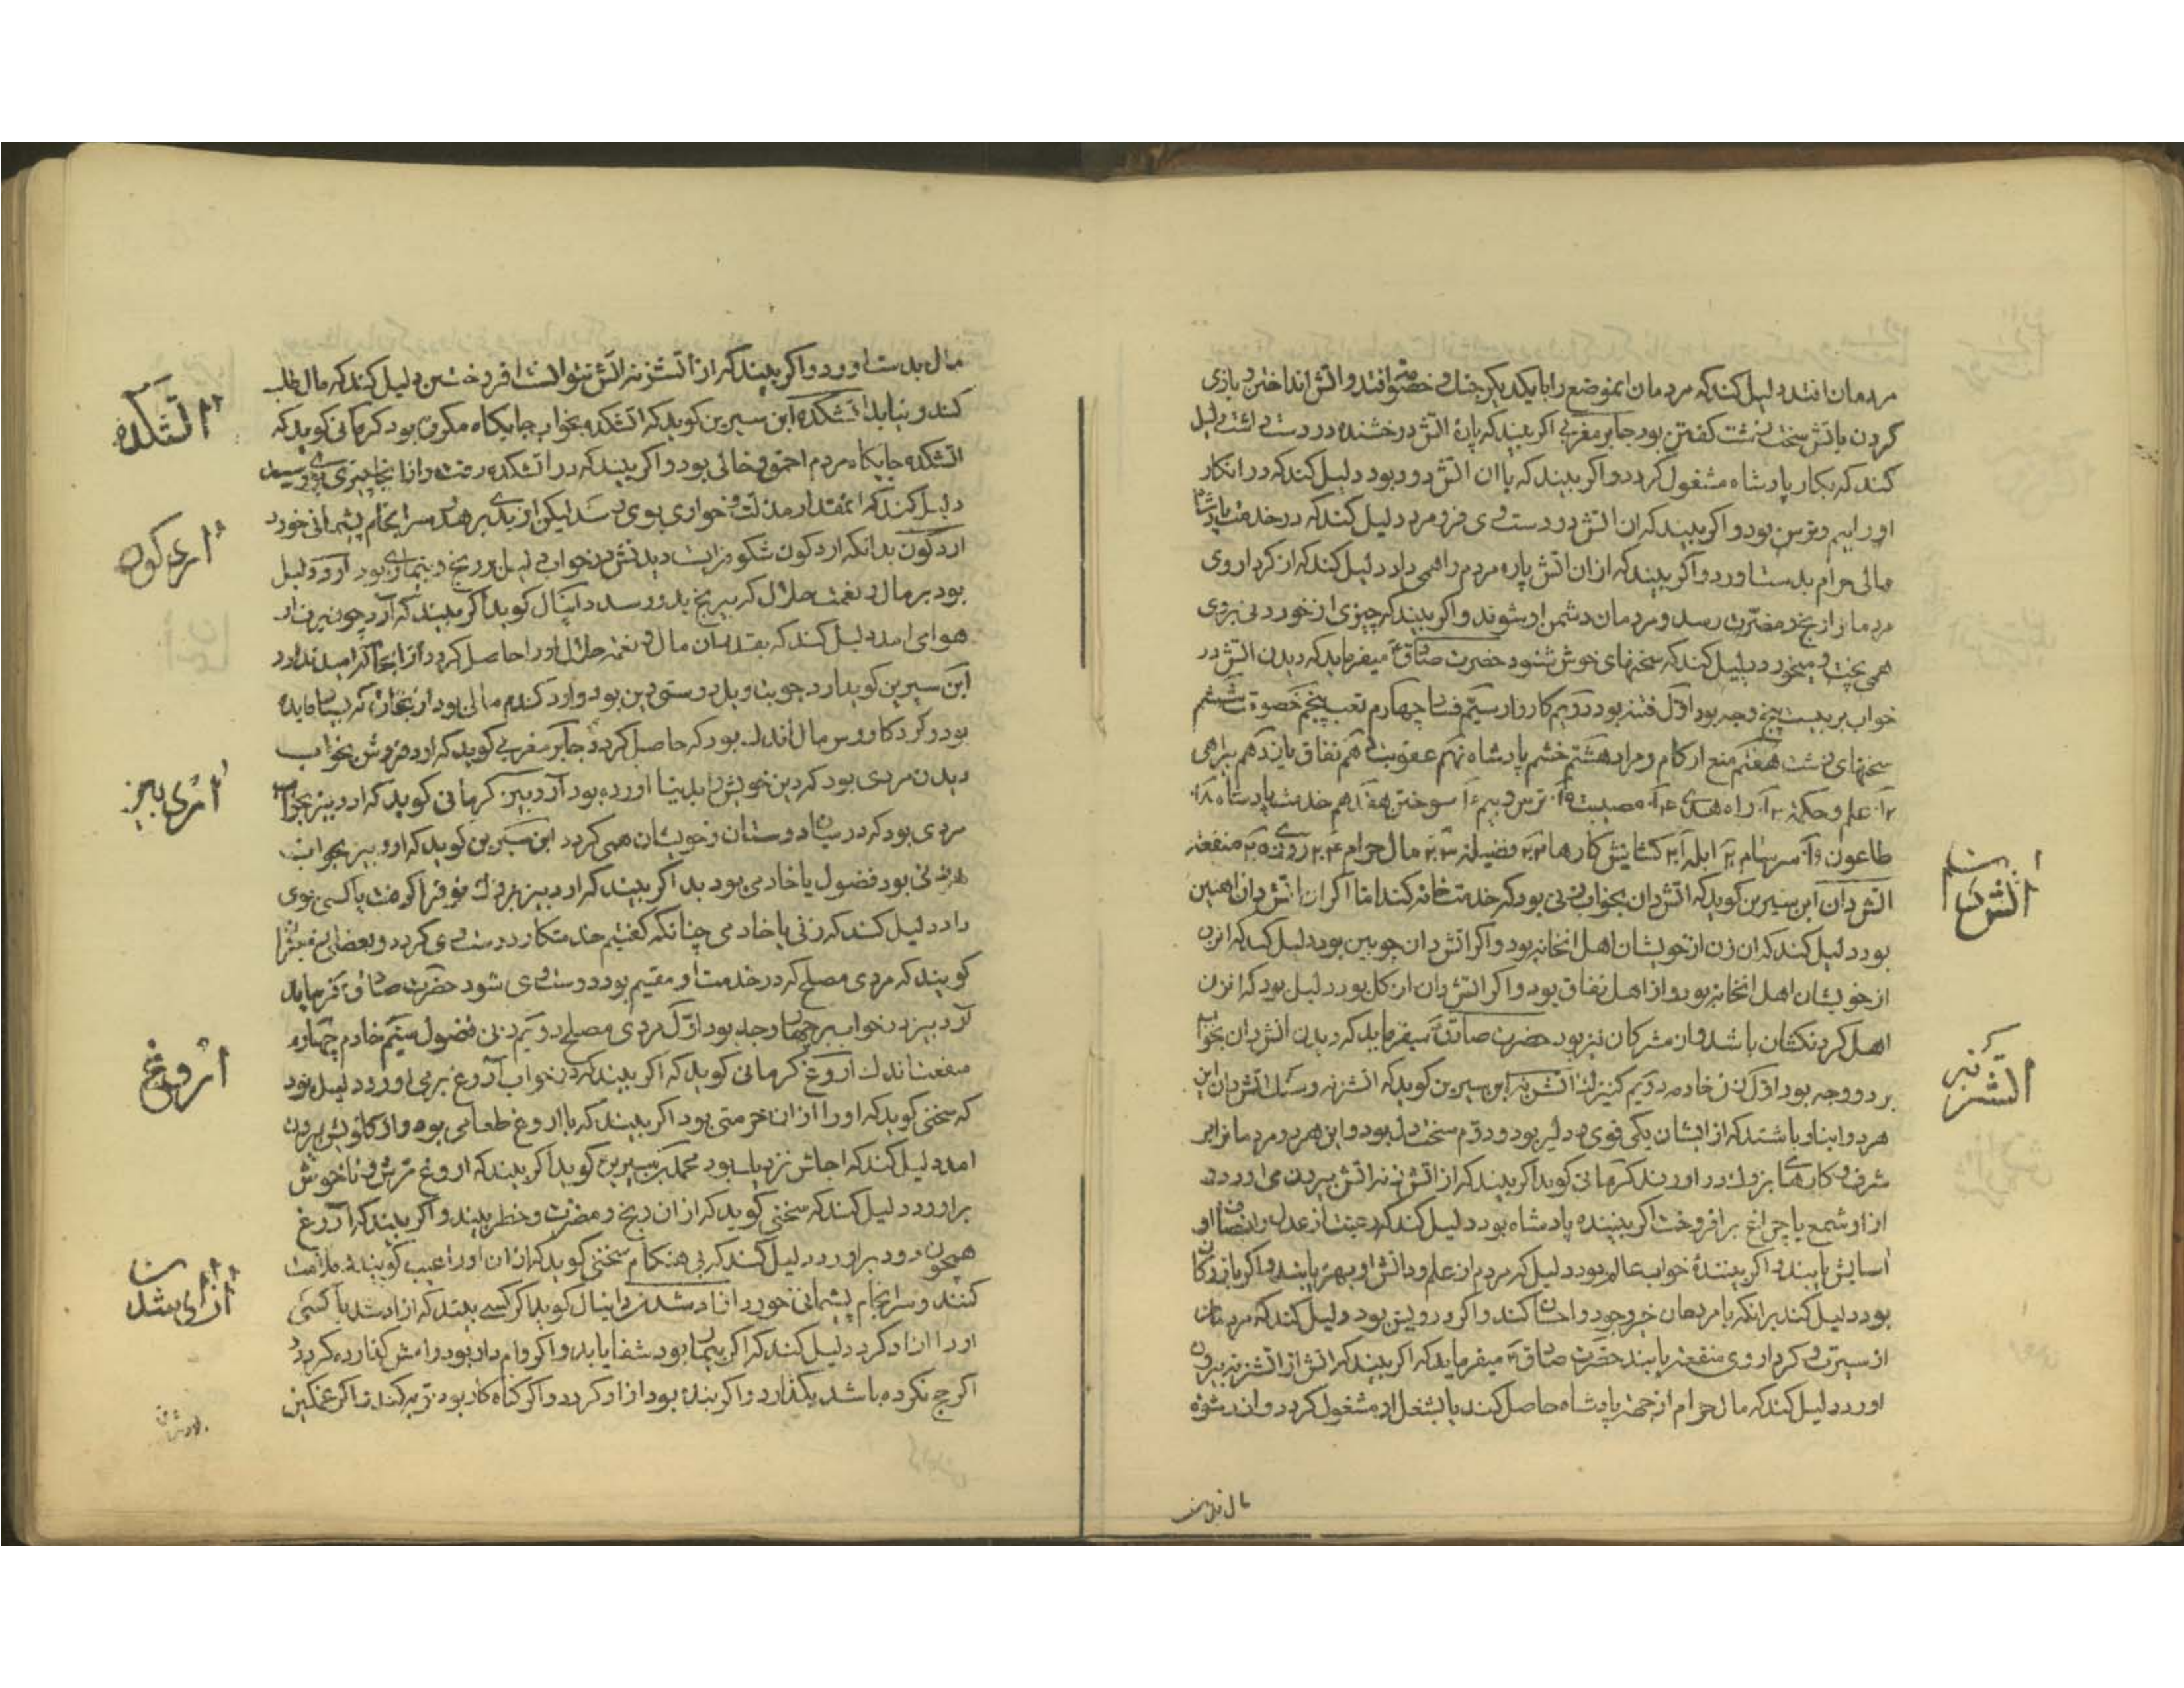 مردمان افتد دلیل کند که مردمان انموضع را با یکدیگر جنک و خصومت افتد و اتش انداختن و بازی
کردن با اتش سخت زشت کفتن بود جابر مغربی اکر بیند که پارۀ اتش درخشنده در دست داشت دلیل
کند که بکار پادشاه مشغول کردد و اکر بیند که با ان اتش دود بود دلیل کند که در انکار
او را بیم و ترس بود و اکر بیند که ان اتش در دست وی فرو مرد دلیل کند که در خدمت پادشاه
مالی حرام بدست اورد و اکر بیند که از ان اتش پاره مردم را همی داد دلیل کند که از کردار وی
مردمان را رنج و مضرّت رسد و مردمان دشمن او شوند و اکر بیند که چیزی از خوردنی بروی
همی پخت و میخورد دلیل کند که سخنهای خوش شنود حضرت صادق ع میفرماید که دیدن اتش در
خواب بر بیست پنج وجه بود اوّل فتنه بود دوّیم کارزار سیّم فساد چهارم تعب پنجم خصومت ششم
سخنهای زشت هفتم منع از کام و مراد هشتم خشم پادشاه نهم عقوبت دهم نفاق یازدهم بیراهی
۱۲ علم و حکمت ۱۳ راه هدی ۱۴ مصیبت ۱۵ ترس و بیم ۱۶ سوختن هفدهم خدمت پادشاه ۱۸
طاعون ۱۹ سرسام ۲۰ ابله ۲۱ کشایش کارها ۲۲ فضیلت ۲۳ مال حرام ۲۴ روزی ۲۵ منفعت
اتش دان ابن سیرین کوید که اتش دان بخواب زنی بود که خدمت خانه کند اما اکر ان اتش دان اهنین
بود دلیل کند که ان زن از خویشان اهل انخانه بود و اکر اتش دان چوبین بود دلیل کند که انزن
از خویشان اهل انخانه بود و از اهل نفاق بود و اکر اتش دان از کل بود دلیل بود که انزن
اهل کردنکشان باشد و از مشرکان نیز بود حضرت صادق ع میفرماید که دیدن اتش دان بخواب
بر دو وجه بود اوّل زن خادمه دویم کنیزک اتش زنه ابن سیرین کوید که اتشزنه و سنک اتش دان این
هر دو انباز باشند که از ایشان یکی قوی و دلیر بود و دوّم سخت دل بود و این هر دو مردمانرا بر
شرف و کارهای بزرك در اورند کرمانی کوید اکر بیند که از اتش زنه اتش بیرون می اورد و
از او شمع یا چراغ بر افروخت اکر بیننده پادشاه بود دلیل کند که رعیت از عدل و انصاف او
اسایش یابند و اکر بینندۀ خواب عالم بود دلیل که مردم از علم و دانش او بهره یابند و اکر بازرکان
بود دلیل کند بر انکه با مردمان خیر و جود و احسان کند و اکر درویش بود دلیل کند که مردمان
از سیرت و کردار وی منفعت یابند حضرت صادق ع میفرماید که اکر بیند که اتش از اتشزنه بیرون
اورد دلیل کند که مال حرام از جهت پادشاه حاصل کند یا بشغل او مشغول کردد و اندر شوه
مال بدست
اتش دان
اتش زنه
مال بدست اورد و اکر بیند که از اتشزنه اتش نتوانست افروختن دلیل کند که مال طلب
کند و نیابد اتشکده ابن سیرین کوید که اتشکده بخواب جایکاه مکروه بود کرمانی کوید که
اتشکده جایکاه مردم احمق و خائن بود و اکر بیند که در اتشکده رفت و از انجا چیزی بوی رسید
دلیل کند که انمقدار مذلت و خواری بوی رسد لیکن از بدی برهد و سرانجام پشیمانی خورد
اردکون بدانکه اردکون شکوفه است دیدنش در خواب دلیل بر رنج و بیماری بود آرد دلیل
بود بر مال و نعمت حلال که بیرنج بدو رسد دانیال کوید اکر بیند که آرد چون برف از
هوا می امد دلیل کند که بقدر ان مال و نعمت حلال او را حاصل کردد از انجا که امید ندارد
ابن سیرین کوید ارد جو بتاویل درستی دین بود و ارد کندم مالی بود از تجارت که بسیار فایده
بود و کرد کاورس مال اندك بود که حاصل کردد جابر مغربی کوید که ارد فروش بخواب
دیدن مردی بود که دین خویش را بدنیا اورده بود آرد بیز کرمانی کوید که ارد بیز بخواب
مردی بود که در میان دوستان و خویشان همی کردد ابن سیرین کوید که ارد بیز بخواب
زنی بود فضول یا خادمی بود بد اکر بیند که ارد بیز بزرك نو فرا کرفت یا کسی بوی
داد دلیل کند که زنی یا خادمی چنانکه کفتیم خدمتکار و دوست وی کردد و بعضی از معبّران
کویند که مردی مصلح که در خدمت او مقیم بود دوست وی شود حضرت صادق ع فرماید
آرد بیز در خواب بر چهار وجه بود اوّل مردی مصلح دویّم زنی فضول سیّم خادم چهارم
منفعت اندك آروغ کرمانی کوید که اکر بیند که در خواب آروغ بر می اورد دلیل بود
که سخنی کوید که او را از ان حرمتی بود اکر بیند که با اروغ طعامی بود و از کلویش بیرون
امد دلیل کند که اجلش نزدیك بود محمد بن سیرین کوید اکر بیند که اروغ ترش و ناخوش
براورد دلیل کند که سخنی کوید که از ان رنج و مضرت و خطر بیند و اکر بیند که آروغ
همچون دود براورد دلیل کند که بی هنکام سخنی کوید که از ان او را عیب کویند و ملامت
کنند و سرانجام پشیمانی خورد ازاد شدن دانیال کوید اکر کسی بیند که ازاد شد یا کسی
او را ازاد کرد دلیل کند که اکر بیمار بود شفا یابد و اکر وام دار بود وامش کذارده کردد و
اکر حج نکرده باشد بکذارد و اکر بنده بود ازاد کردد و اکر کناه کار بود توبه کند و اکر غمکین
اتشکده
اردکون
ارد بیز
اروغ
ازاد شدن